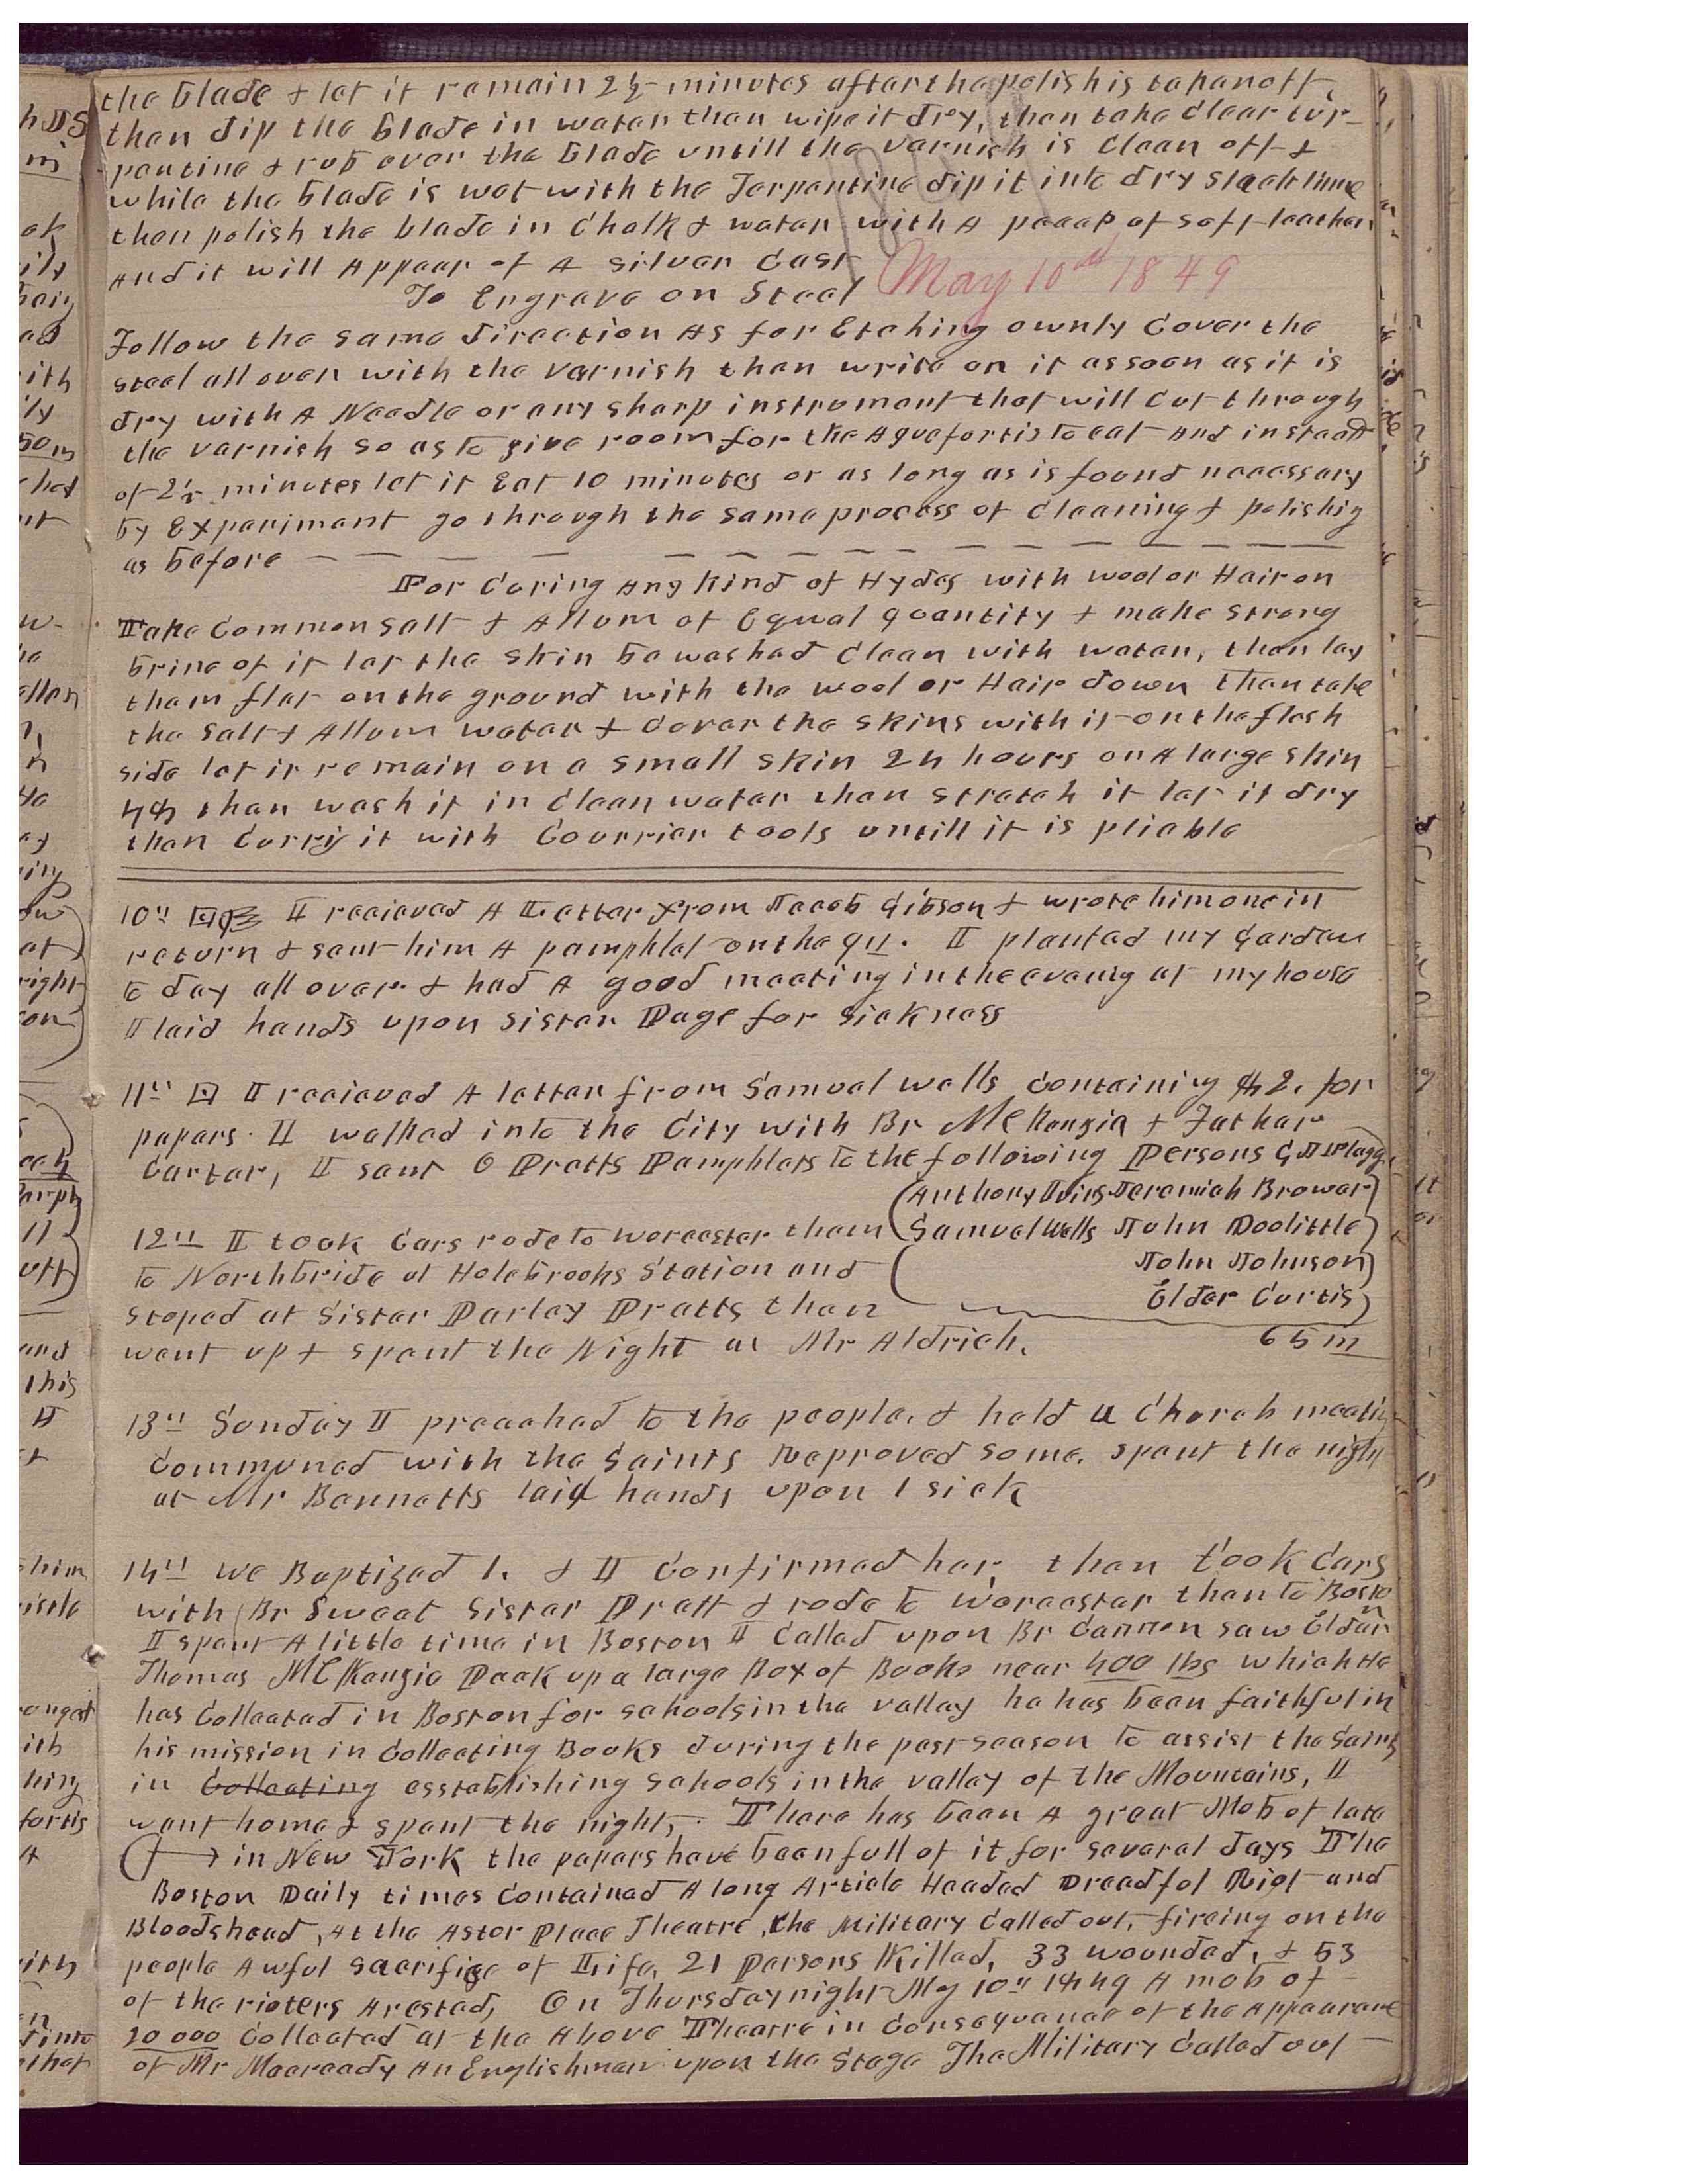 the blade & let it remain 2½ minutes after the polish is taken off,
then dip the blade in water then wipe it dry, then take clear tur-
pentine & rub over the blade untill the varnish is clean off &
while the blade is wet with the Terpentine dip it into dry slack lime
then polish the blade in Chalk & water with A peace of soft leather
And it will Appear of A silver Cast
To Engrave on Steel May 10th 1849
Follow the same direction As for Etching ownly Cover the
steel all over with the varnish then write on it as soon as it is
dry with A Needle or any sharp instrument that will Cut through
the varnish so as to give room for the Aquefortis to eat And instead
of 2½ minutes let it Eat 10 minutes or as long as is found necessary
by Experiment go through the same process of Cleaning & polishig
as before
For Curing Any kind of Hydes with wool or Hair on
Take Common Salt & Allum of Equal quantity & make strong
brine of it let the skin be washed Clean with water, then lay
them flat on the ground with the wool or Hair down Then take
the Salt & Allum water & Cover the skins with it on the flesh
side let it remain on a small skin 24 hours on A large skin
48 then wash it in Clean water then stretch it let it dry
then Curry it with Courrier tools untill it is pliable
10th I recieved A Letter from Jacob Gibson & wrote him one in
return & sent him A pamphlet on the 9th. I planted my Garden
to day all over & had A good meeting in the evenig at my house
I laid hands upon Sister Page for Sickness
11th I recieved A letter from Samuel Wells Containing $2. for
papers. I walked into the City with Br McKenzie & Father
Carter, I sent O Pratts Pamphlets to the following Persons G. J. Plagg
(Anthony Ivins Jeremiah Brower)
12th I took Cars rode to Worcester then (Samuel Wells John Doolittle)
to Northbride at Holebrooks Station and ( John Johnson)
stoped at Sister Parley Pratts then Elder Curtis)
went up & spent the Night at Mr Aldrich. 65 m
13th Sunday I preached to the people, & held a Church meetig
Communed with the Saints Reproved some, spent the night
at Mr Bennetts laid hands upon 1 sick
14th We Baptized 1. & I Confirmed her, then took Cars
with Br Sweat Sister Pratt & rode to Worcester then to Boston
I spent A little time in Boston I Called upon Br Cannon saw Elder
Thomas McKenzie Pack up a large Box of Books near 400 lbs which He
has Collected in Boston for schools in the valley he has been faithful in
his mission in Collecting Books during the past season to assist the Saints
in Collecting esstablishing schools in the valley of the Mountains, I
went home & spent the night, There has been A great Mob of late
in New York the papers have been full of it for several days The
Boston Daily times Contained A long Article Headed Dreadful Riot and
Bloodshead, At the Astor Place Theatre, the Military Called out, fireing on the
people Awful Sacrifice of Life, 21 Persons Killed, 33 wounded, & 53
of the rioters Arested, On Thursday night My 10th 1849 A mob of
20 000 Collected at the Above Theatre in Consequence of the Appearane
of Mr Macready An Englishman upon the Stage The Military Called out